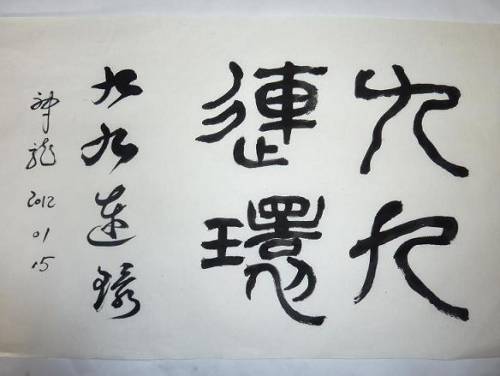 六九
連環
六九連環
神龍 2012 01 15